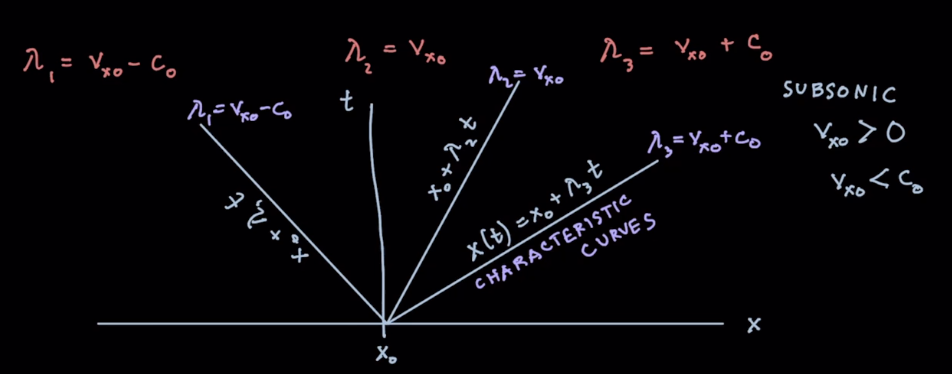 λ₁ = Vₓ₀ - C₀
λ₂ = Vₓ₀
λ₃ = Vₓ₀ + C₀
λ₁ = Vₓ₀ - C₀
t
λ₂ = Vₓ₀
λ₃ = Vₓ₀ + C₀
SUBSONIC
Vₓ₀ > 0
Vₓ₀ < C₀
x(t) = x₀ + λ₃ t
CHARACTERISTIC
CURVES
x
x₀